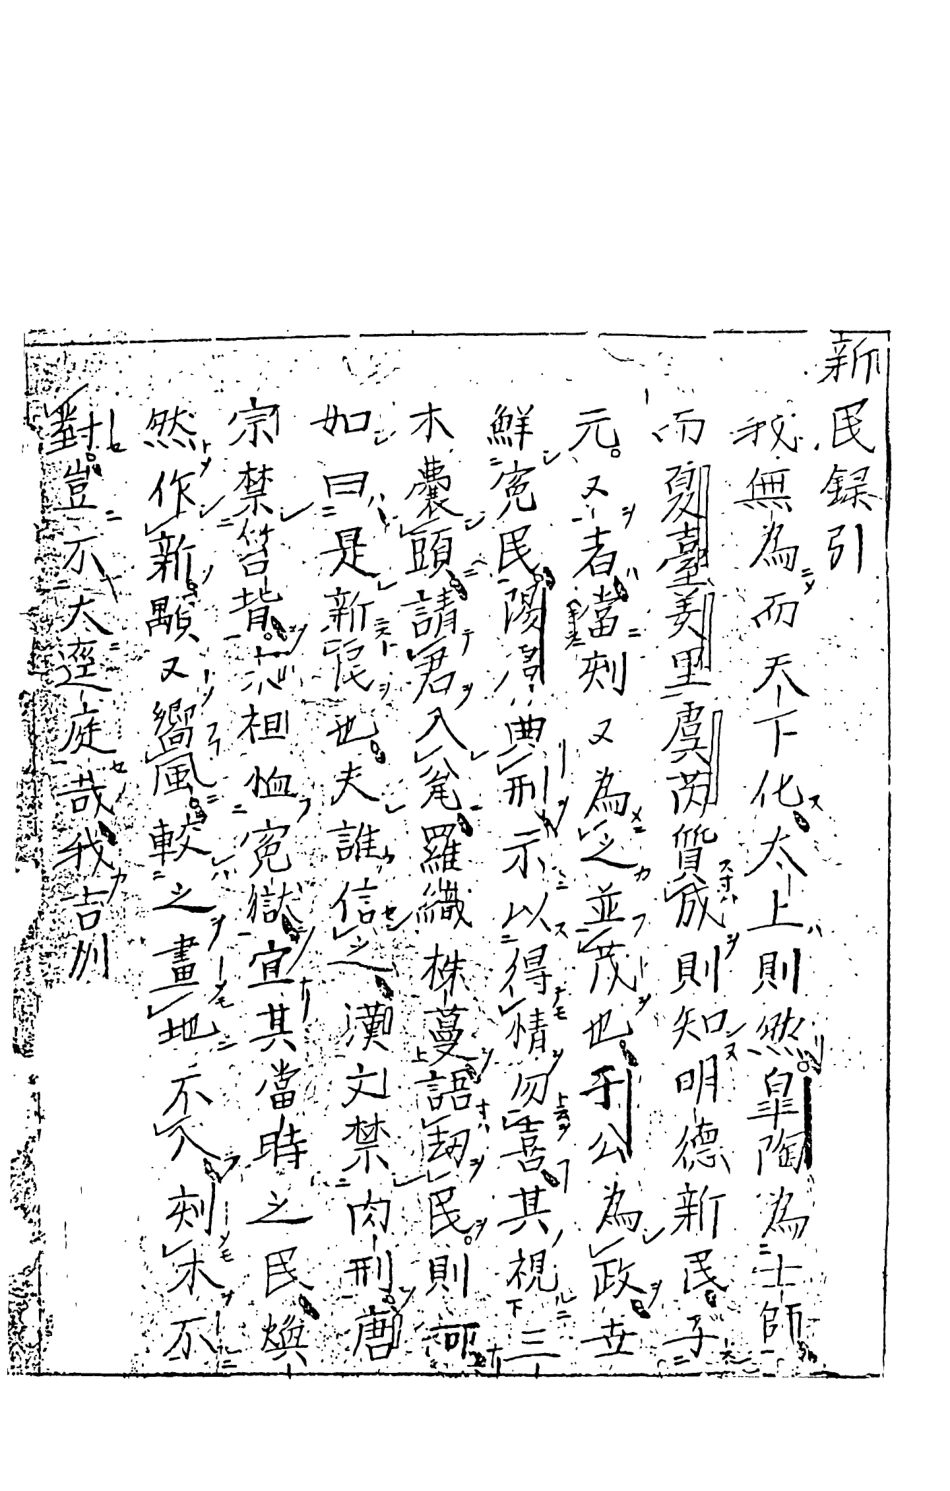 新民録引
我無為而天下化太上則然皐陶為士師
而夏臺羑里虞芮質成則知明德新民子
元又者當刻又為之並茂也于公為政世
鮮寃民 典刑示以得情勿喜其視三
木囊頭請君入瓮羅織株蔓語劫民則何
如曰是新民也夫誰信之漢文禁肉刑唐
宗禁笞背 祖恤寃獄宜其當時之民煥
然作新顒又嚮風較之畫地不入刻木不
對豈不太逕庭哉我吉州